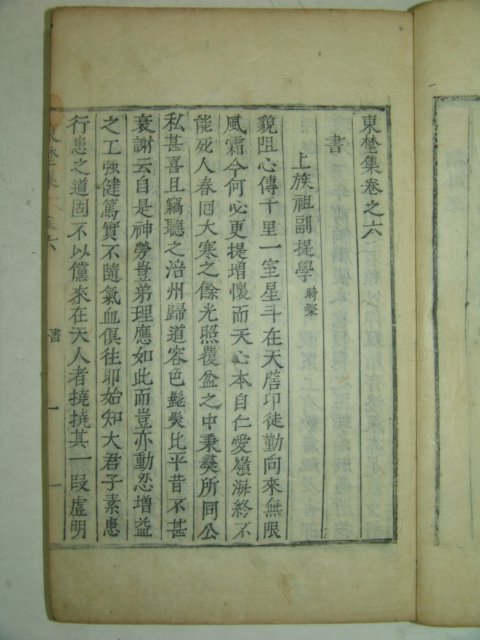 東埜集卷之六
書
上族祖副提學 時㸁
貌阻心傳千里一室星斗在天扂卬徒勤向來無限
風霜今何必更提增懷而天心本自仁愛嶺海終不
能死人春回大寒之餘光照覆盆之中秉彛所同公
私甚喜且竊聽之涪州歸道容色髭髮比平昔不甚
衰謝云自是神勞豈弟理應如此而豈亦動忍增益
之工強健篤實不隨氣血俱往耶始知大君子素患
行患之道固不以儻來在天人者撓撓其一段虛明
東埜集 卷六
書
一